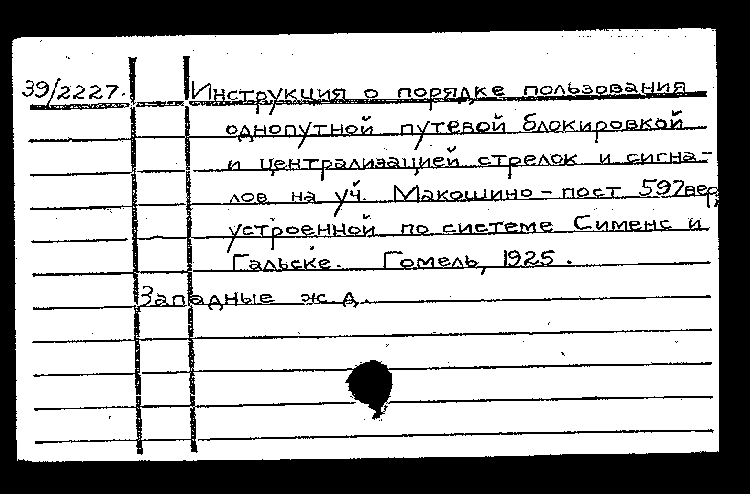 39/2227. Инструкция о порядке пользования
однопутной путевой блокировкой
и централизацией стрелок и сигна-
лов на уч. Макошино - пост 597 вер,
устроенной по системе Сименс и
Гальске. Гомель, 1925.
Западные ж.д.